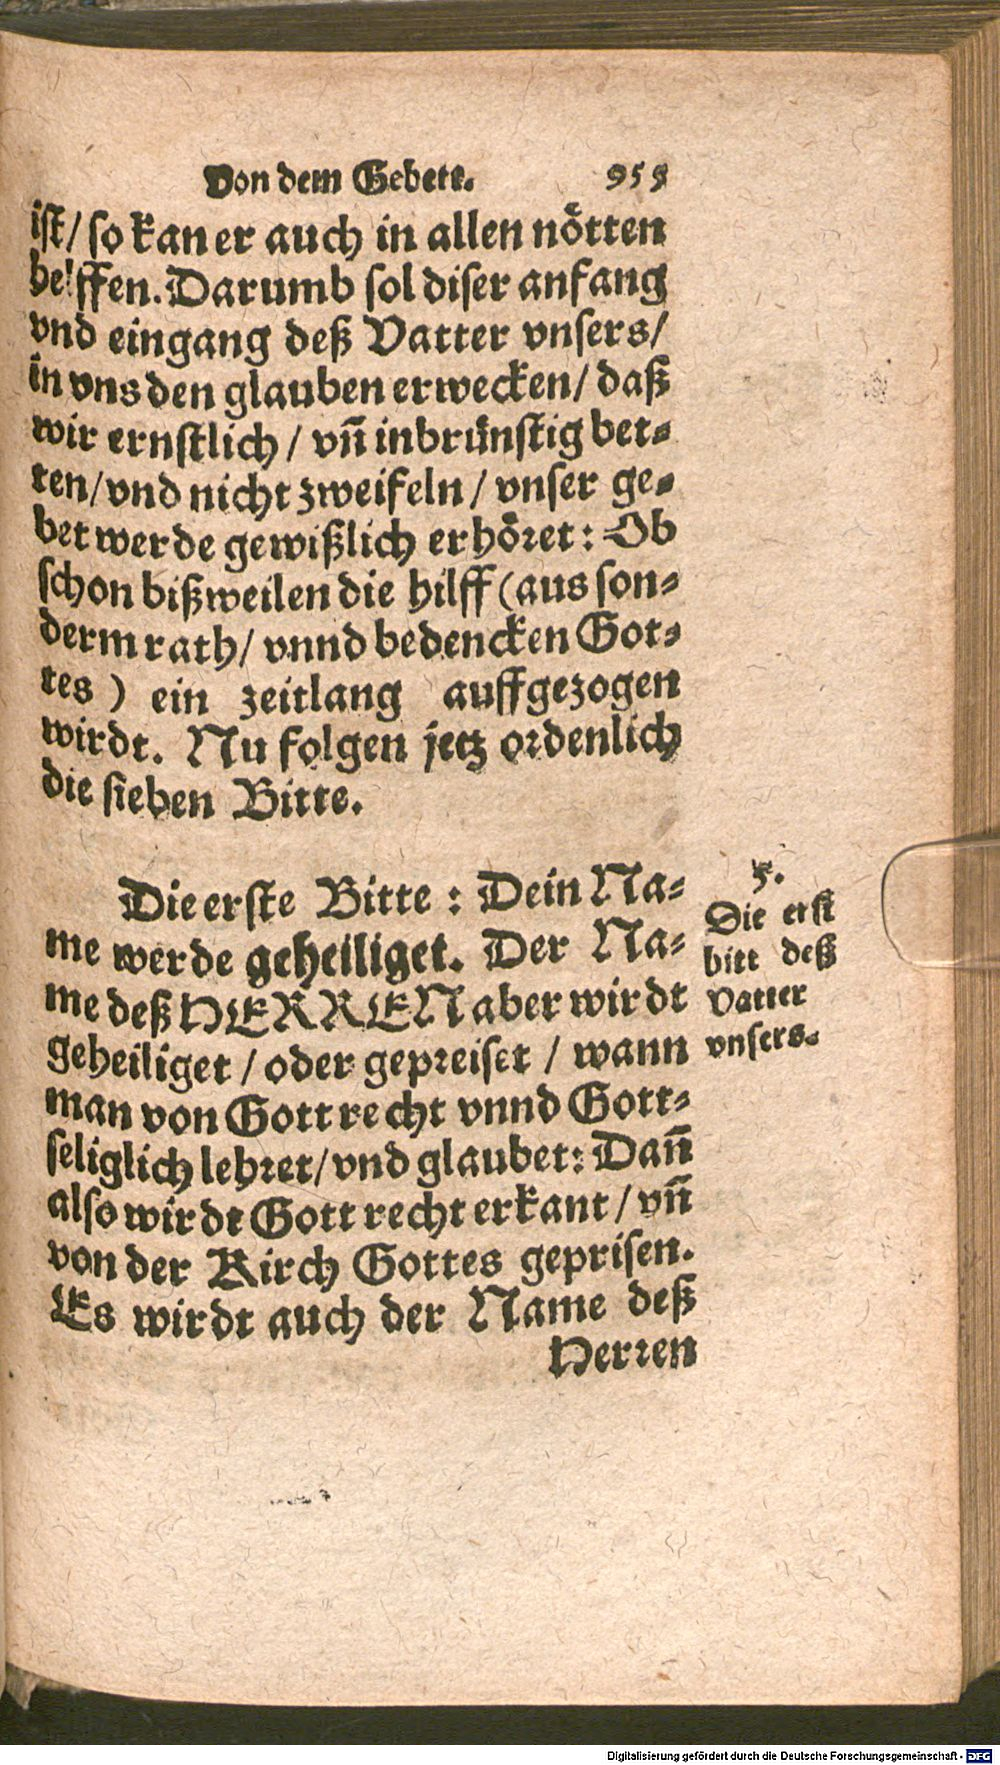 Von dem Gebett. 955
ist/ so kan er auch in allen nötten
helffen. Darumb sol diser anfang
vnd eingang deß Vatter vnsers/
in vns den glauben erwecken/ daß
wir ernstlich/ vñ inbrünstig bet-
ten/ vnd nicht zweifeln/ vnser ge-
bet werde gewißlich erhöret: Ob
schon bißweilen die hilff (aus son-
derm rath/ vnnd bedencken Got-
tes) ein zeitlang auffgezogen
wirdt. Nu folgen jetz ordenlich
die sieben Bitte.
Die erste Bitte: Dein Na-
me werde geheiliget. Der Na-
me deß HERREN aber wirdt
geheiliget/ oder gepreiset/ wann
man von Gott recht vnnd Gott-
seliglich lehret/ vnd glaubet: Dañ
also wirdt Gott recht erkant/ vñ
von der Kirch Gottes geprisen.
Es wirdt auch der Name deß
Herren
5.
Die erst
bitt deß
Vatter
vnsers.
Digitalisierung gefördert durch die Deutsche Forschungsgemeinschaft - DFG